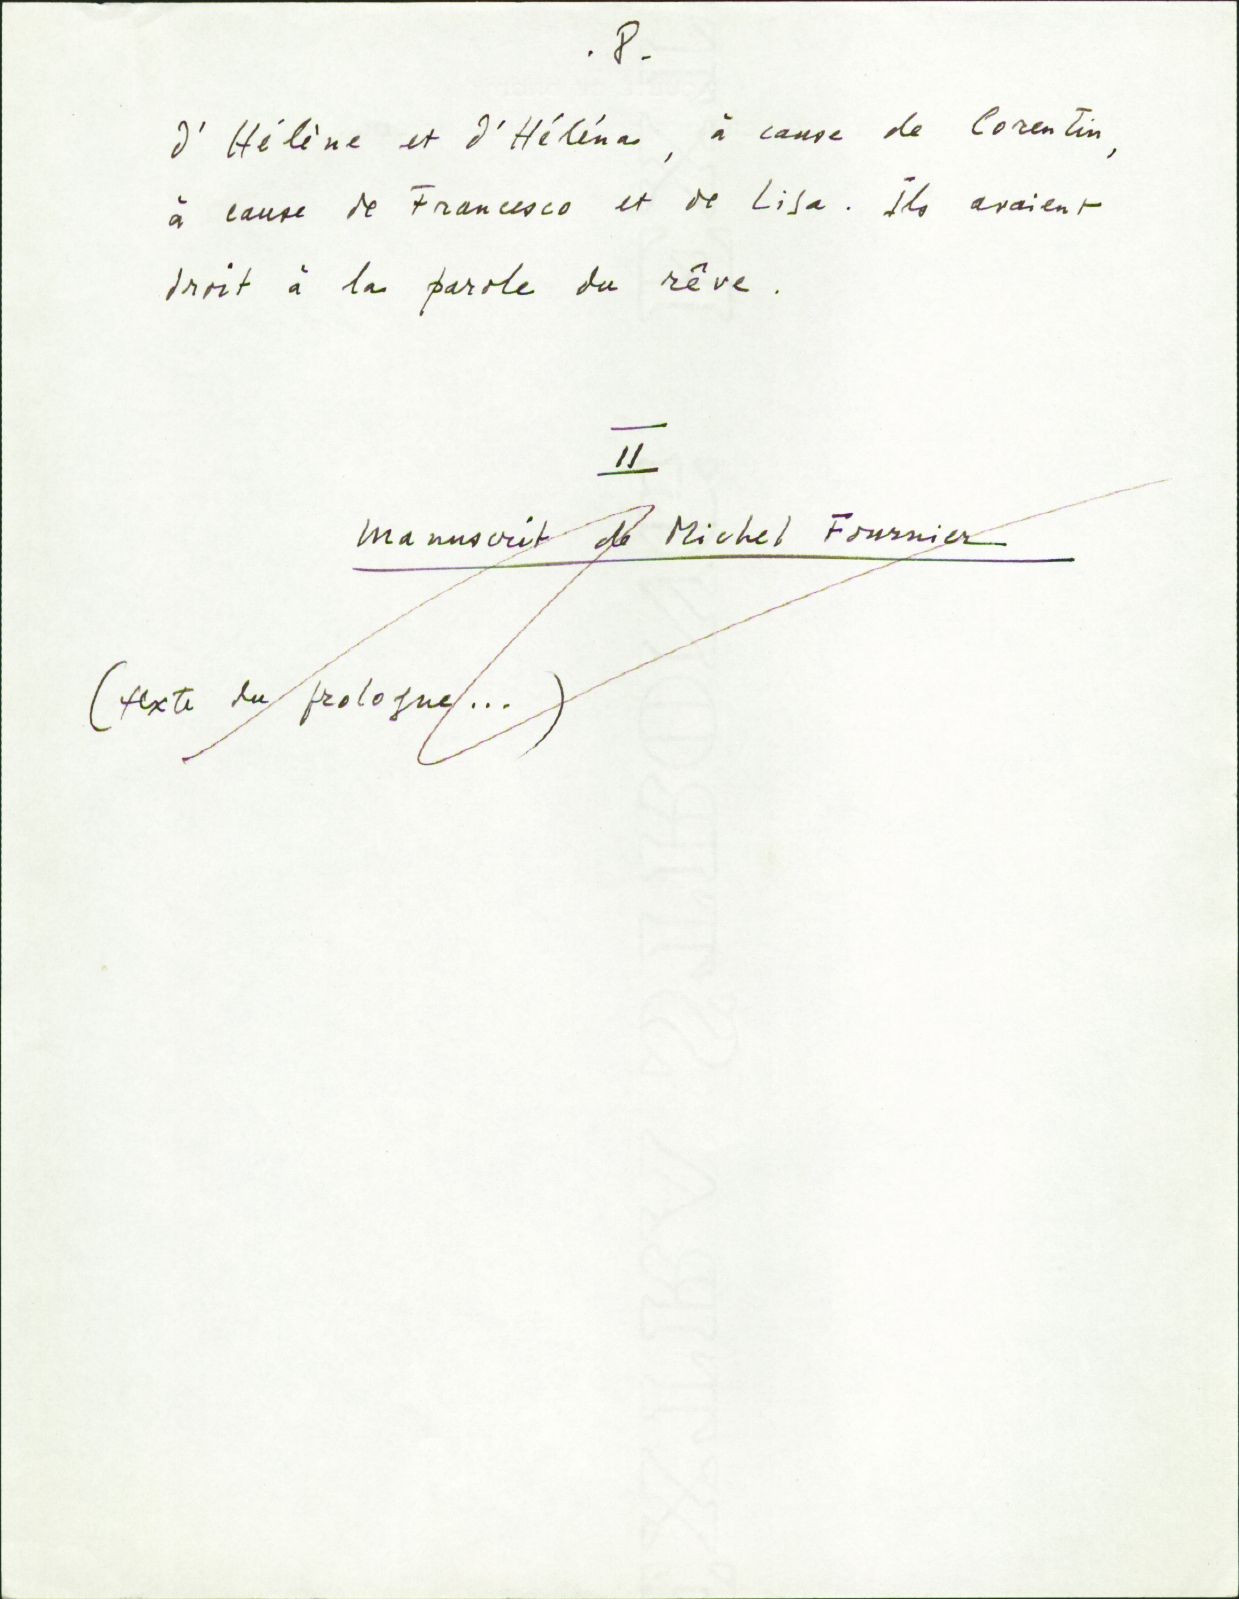 . 8 -
d' Hélène et d'Héléna, à cause de Corentin,
à cause de Francesco et de Lisa. Ils avaient
droit à la parole du rêve.
II
Manuscrit de Michel Fournier
(texte du prologue...)